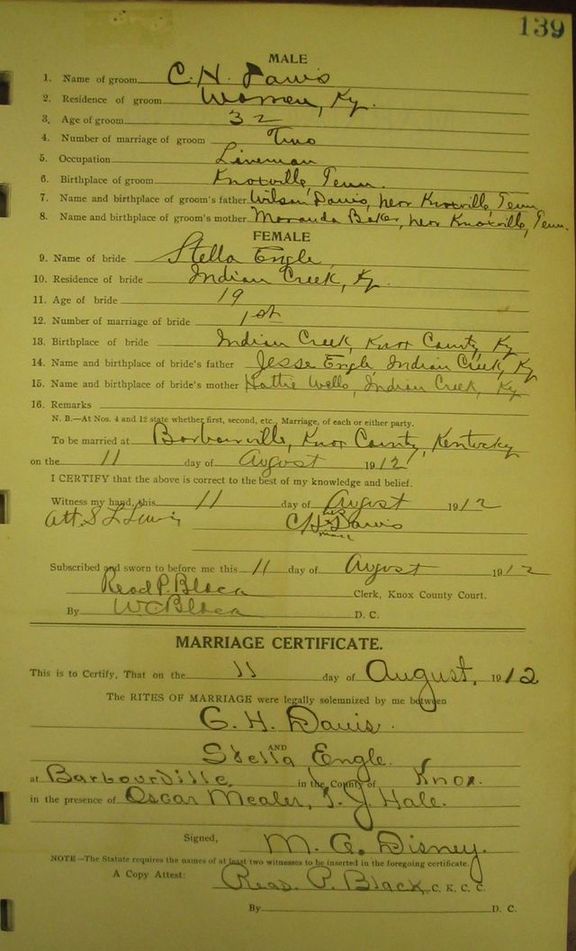 139
MALE
1. Name of groom C. H. Davis
2. Residence of groom Women, Ky.
3. Age of groom 32
4. Number of marriage of groom Two
5. Occupation Lineman
6. Birthplace of groom Knoxville, Tenn.
7. Name and birthplace of groom's father Wilson Davis, near Knoxville, Tenn
8. Name and birthplace of groom's mother Moranda Baker, near Knoxville, Tenn.
FEMALE
9. Name of bride Stella Engle,
10. Residence of bride Indian Creek, Ky.
11. Age of bride 19
12. Number of marriage of bride 1st
13. Birthplace of bride Indian Creek, Knox County, Ky
14. Name and birthplace of bride's father Jesse Engle, Indian Creek, Ky
15. Name and birthplace of bride's mother Hattie Wells, Indian Creek, Ky
16. Remarks
N. B.—At Nos. 4 and 12 state whether first, second, etc., Marriage, of each or either party.
To be married at Barbourville, Knox County, Kentucky
on the 11 day of August 1912
I CERTIFY that the above is correct to the best of my knowledge and belief.
Witness my hand, this 11 day of August 1912
Att. S L Lewis C H his x mark Davis
Subscribed and sworn to before me this 11 day of August 1912
Read P. Black Clerk, Knox County Court.
By W C Black D. C.
MARRIAGE CERTIFICATE.
This is to Certify, That on the 11 day of August, 1912
The RITES OF MARRIAGE were legally solemnized by me between
C. H. Davis.
AND
Stella Engle.
at Barbourville, in the County of Knox.
in the presence of Oscar Mealer, T. J. Hale.
Signed, M. C. Disney.
NOTE—The Statute requires the names of at least two witnesses to be inserted in the foregoing certificate.
A Copy Attest: Read. P. Black C. K. C. C.
By D. C.